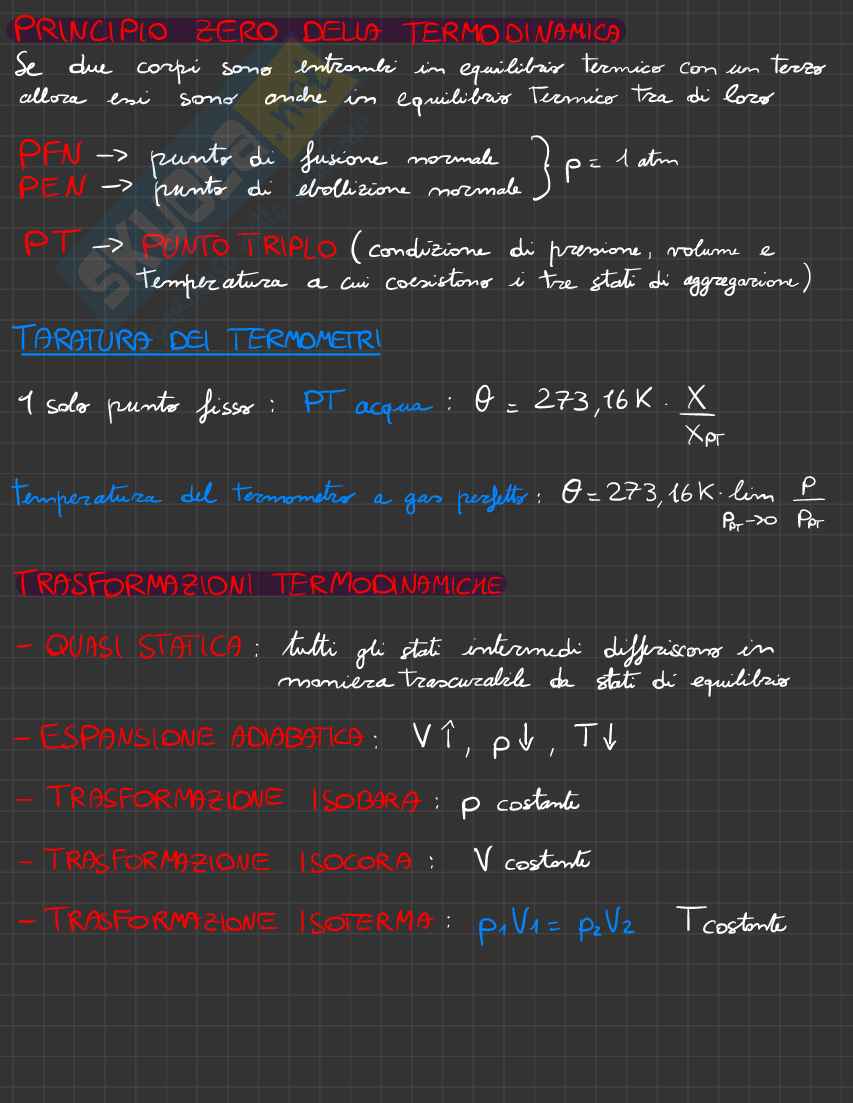 PRINCIPIO ZERO DELLA TERMODINAMICA
Se due corpi sono entrambi in equilibrio termico con un terzo
allora essi sono anche in equilibrio Termico tra di loro
PFN -> punto di fusione normale } p = 1 atm
PEN -> punto di ebollizione normale
PT -> PUNTO TRIPLO (condizione di pressione, volume e
temperatura a cui coesistono i tre stati di aggregazione)
TARATURA DEI TERMOMETRI
1 solo punto fisso : PT acqua : θ = 273,16 K · X / X_PT
temperatura del termometro a gas perfetto : θ = 273,16 K · lim_{P_PT->0} P / P_PT
TRASFORMAZIONI TERMODINAMICHE
- QUASI STATICA : tutti gli stati intermedi differiscono in
maniera trascurabile da stati di equilibrio
- ESPANSIONE ADIABATICA : V↑, p↓, T↓
- TRASFORMAZIONE ISOBARA : p costante
- TRASFORMAZIONE ISOCORA : V costante
- TRASFORMAZIONE ISOTERMA : p₁V₁ = p₂V₂ T costante
SKUOLA.net